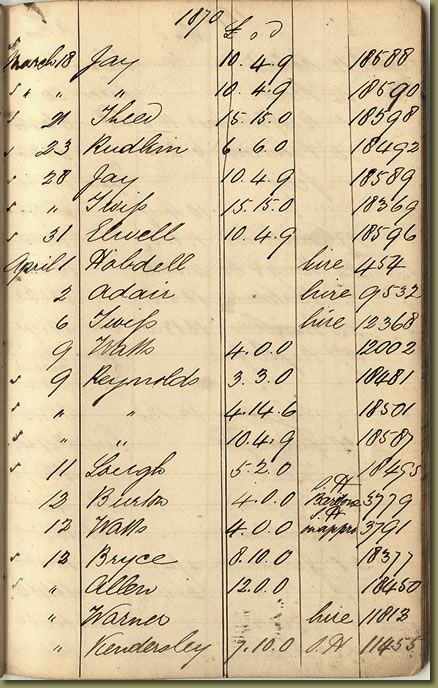 1870
£ s d
s March 18 Jay 10.4.9 18588
s " " " 10.4.9 18590
s 21 Theed 15.15.0 18598
s 23 Rudhim 6.6.0 18492
s 28 Jay 10.4.9 18589
s " Twiss 15.15.0 18369
s 31 Elwell 10.4.9 18596
April 1 Hobdell hire 454
2 Adair hire 9532
6 Twiss hire 12368
9 Watts 4.0.0 12002
s 9 Reynolds 3.3.0 18481
s " " 4.14.6 18501
s " " 10.4.9 18587
s 11 Lough 5.2.0 18495
12 Burton 4.0.0 S.H 3779
12 Watts 4.0.0 S.H 3791
s 12 Bryce 8.10.0 18377
s " Allen 12.0.0 18450
" Warner hire 11813
" Kendersley 7.10.0 S.H 11455